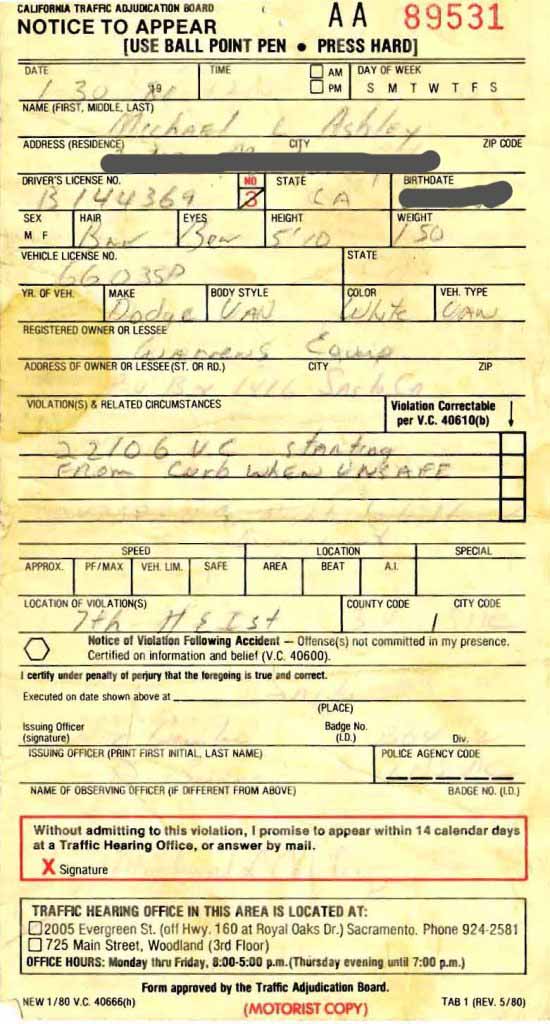 CALIFORNIA TRAFFIC ADJUDICATION BOARD
NOTICE TO APPEAR
AA 89531
[USE BALL POINT PEN • PRESS HARD]
DATE TIME AM PM DAY OF WEEK
1 30 19 S M T W T F S
NAME (FIRST, MIDDLE, LAST)
Michael L Ashley
ADDRESS (RESIDENCE) CITY ZIP CODE
DRIVER'S LICENSE NO. NO STATE BIRTHDATE
B144369 3 CA
SEX HAIR EYES HEIGHT WEIGHT
M F Brn 5'10 150
VEHICLE LICENSE NO. STATE
YR. OF VEH. MAKE BODY STYLE COLOR VEH. TYPE
Dodge VAN White VAN
REGISTERED OWNER OR LESSEE
Equip
ADDRESS OF OWNER OR LESSEE (ST. OR RD.) CITY ZIP
Box 1416
VIOLATION(S) & RELATED CIRCUMSTANCES Violation Correctable per V.C. 40610(b)
22106 VC Starting
From Curb WHEN UNSAFE
SPEED LOCATION SPECIAL
APPROX. PF/MAX VEH. LIM. SAFE AREA BEAT A.I.
LOCATION OF VIOLATION(S) COUNTY CODE CITY CODE
7th H & I St
Notice of Violation Following Accident — Offense(s) not committed in my presence.
Certified on information and belief (V.C. 40600).
I certify under penalty of perjury that the foregoing is true and correct.
Executed on date shown above at
(PLACE)
Issuing Officer (signature) Badge No. (I.D.) Div.
ISSUING OFFICER (PRINT FIRST INITIAL, LAST NAME) POLICE AGENCY CODE
NAME OF OBSERVING OFFICER (IF DIFFERENT FROM ABOVE) BADGE NO. (I.D.)
Without admitting to this violation, I promise to appear within 14 calendar days
at a Traffic Hearing Office, or answer by mail.
X Signature
TRAFFIC HEARING OFFICE IN THIS AREA IS LOCATED AT:
2005 Evergreen St. (off Hwy. 160 at Royal Oaks Dr.) Sacramento. Phone 924-2581
725 Main Street, Woodland (3rd Floor)
OFFICE HOURS: Monday thru Friday, 8:00-5:00 p.m. (Thursday evening until 7:00 p.m.)
Form approved by the Traffic Adjudication Board.
NEW 1/80 V.C. 40666(h) (MOTORIST COPY) TAB 1 (REV. 5/80)